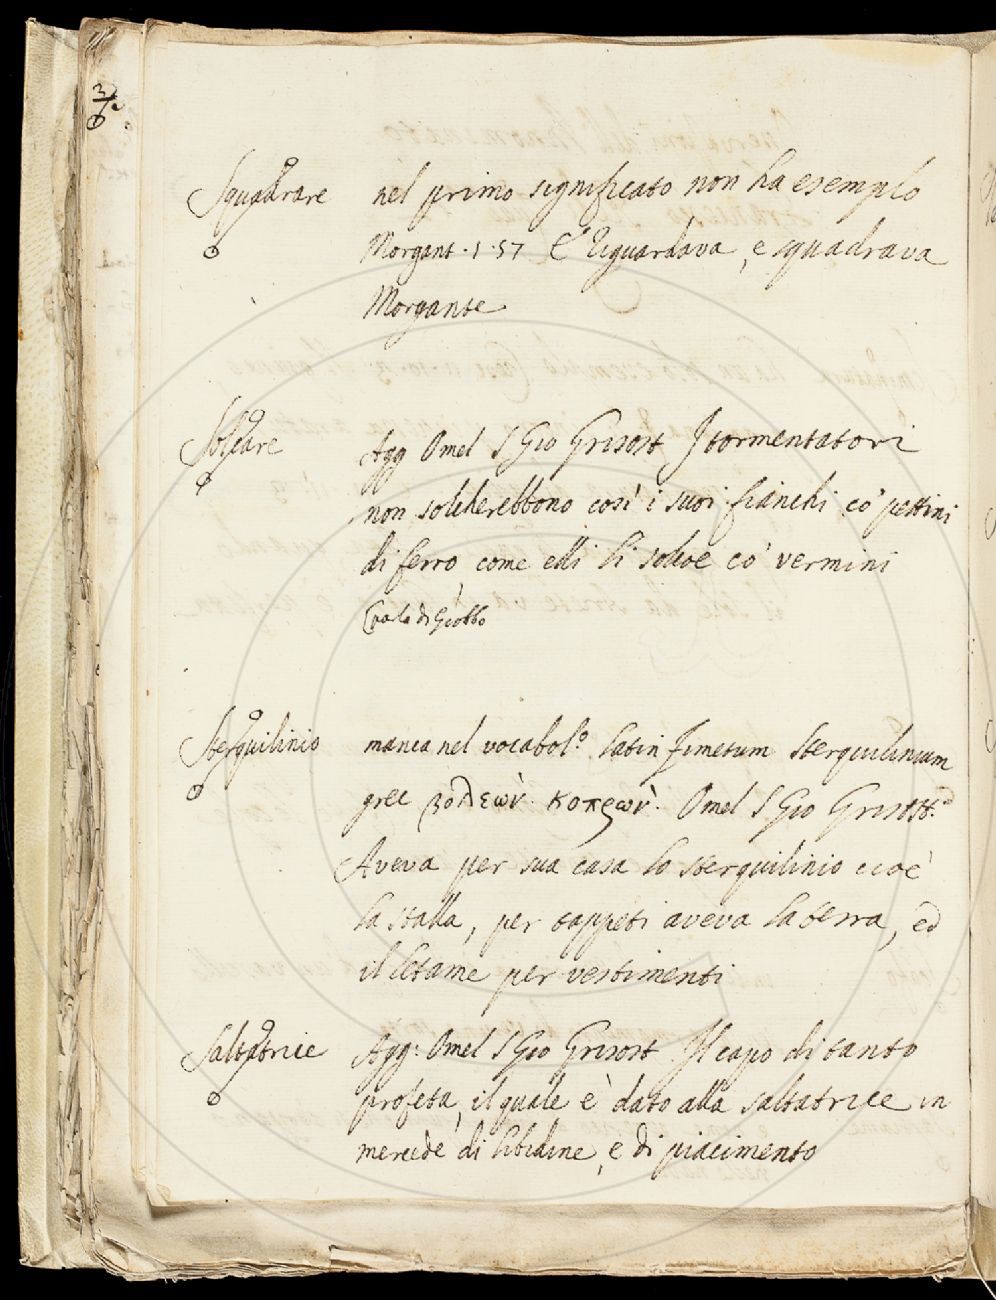 Squadrare nel primo significato non ha esempio
Morgant. 1. 57 E riguardava, e squadrava
Morgante
Solcare Agg Omel S Gio Grisost I tormentatori
non solcherebbono così i suoi fianchi co' pettini
di ferro, come elli li solcoe co' vermini
(parla di Giobbo
Sterquilinio manca nel vocabol.º latin Fimetum Sterquilinium
grec βολεων. κοπρων. Omel S Gio Grisost.
Aveva per sua casa lo sterquilinio cioè
la stalla, per tappeti aveva la terra, ed
il letame per vestimenti
Saltatrice Agg: Omel S Gio Grisost. Il capo di tanto
profeta, il quale è dato alla saltatrice in
mercede di libidine, e di piacimento